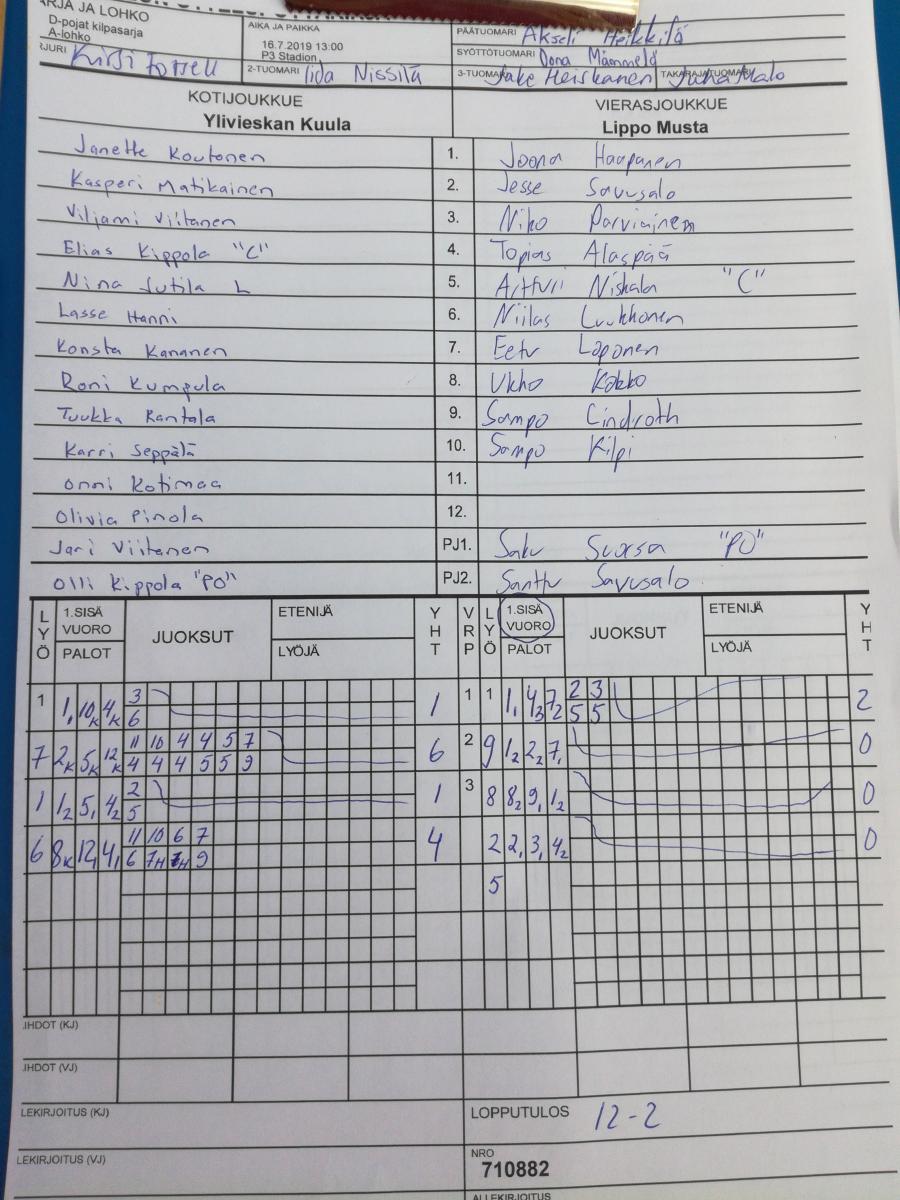 ARJA JA LOHKO
D-pojat kilpasarja
A-lohko
AIKA JA PAIKKA
16.7.2019 13:00
P3 Stadion
PÄÄTUOMARI Akseli Heikkilä
SYÖTTÖTUOMARI Oona Mämmelä
Kirsi Forsell
2-TUOMARI Iida Nissilä
3-TUOMARI Sake Heiskanen
KOTIJOUKKUE
Ylivieskan Kuula
VIERASJOUKKUE
Lippo Musta
Janette Koutonen 1. Joona Haapanen
Kasperi Matikainen 2. Jesse Savusalo
Viljami Viitanen 3. Niko Parviainen
Elias Kippola "C" 4. Topias Alaspää
Nina Jutila L 5. Artturi Niskala "C"
Lasse Hanni 6. Niilas Luukkonen
Konsta Kananen 7. Eetu Laponen
Roni Kumpula 8. Ukko Kokko
Tuukka Rantala 9. Sampo Lindroth
Karri Seppälä 10. Sampo Kilpi
Onni Kotimaa 11.
Olivia Pinola 12.
Jari Viitanen PJ1. Saku Suorsa "PO"
Olli Kippola "PO" PJ2. Santtu Savusalo
LYÖ 1.SISÄ VUORO PALOT JUOKSUT ETENIJÄ LYÖJÄ YHT VRP LYÖ 1.SISÄ VUORO PALOT JUOKSUT ETENIJÄ LYÖJÄ YHT
3 2 3
1 1, 10K 4K 1 1 1 1, 43 72 2
6 5 5
11 10 4 4 5 7
7 2K 5K 12K 6 2 9 12 22 7, 0
4 4 4 5 5 9
2
1 12 5, 42 1 3 8 82 9, 12 0
5
11 10 6 7
6 8K 12, 4, 4 2 2, 3, 42 0
6 7H 7H 9
5
.IHDOT (KJ)
.IHDOT (VJ)
LEKIRJOITUS (KJ)
LOPPUTULOS 12-2
LEKIRJOITUS (VJ)
NRO
710882
ALLEKIRJOITUS